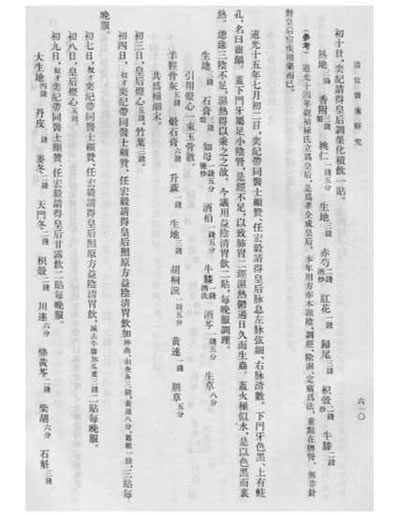 清宮醫案研究
六一〇
初十日，奕紀請得皇后調榮化積飲一貼。
熟地三錢 香附三錢製 桃仁一錢五分 生地三錢 赤芍二錢酒炒 紅花一錢 歸尾三錢 枳殼二錢炒 牛膝二錢
（參考） 道光十四年，鈕祜祿氏立為皇后，是為孝全成皇后。本年用方亦本滋陰、調經、除濕、定痛為法，重點在脾腎，無非針
對皇后宿疾用藥而已。
道光十五年七月初二日，奕紀帶同醫士顯贊、任宏毅請得皇后脉息左脉弦細，右脉滑數。下門牙色黑，上有蛀
孔，名曰齒齲。蓋下門牙屬足少陰腎，是經不足，以致肺胃二經濕熱鬱遏日久而生蟲。蓋火極似水，是以色黑而裏
熱。總緣三陰不足，濕熱得以乘之之故。今議用益陰清胃飲二貼，每晚服調理。
生地三錢 石膏三錢 知母一錢五分 酒柏一錢五分 牛膝一錢酒洗 酒芩一錢五分 生草八分
引用燈心一束玉骨散。
羊脛骨灰五錢 煅石膏六錢 升麻一錢 生地三錢 胡桐淚一錢五分 黃連一錢 胆草五分
共為極細末。
初三日，皇后燈心五錢，竹葉三錢。
初四日，奴才奕紀帶同醫士顯贊、任宏毅請得皇后照原方益陰清胃飲三貼，每
晚服。
初七日，奴才奕紀帶同醫士顯贊、任宏毅請得皇后照原方益陰清胃飲，二貼每晚服。
初八日，皇后燈心五錢。
初九日，奴才奕紀帶同醫士顯贊、任宏毅請得皇后甘露飲二貼每晚服。
大生地四錢 丹皮二錢 麥冬二錢 天門冬二錢 枳殼二錢 川連六分 條黃芩二錢 柴胡六分 石斛三錢